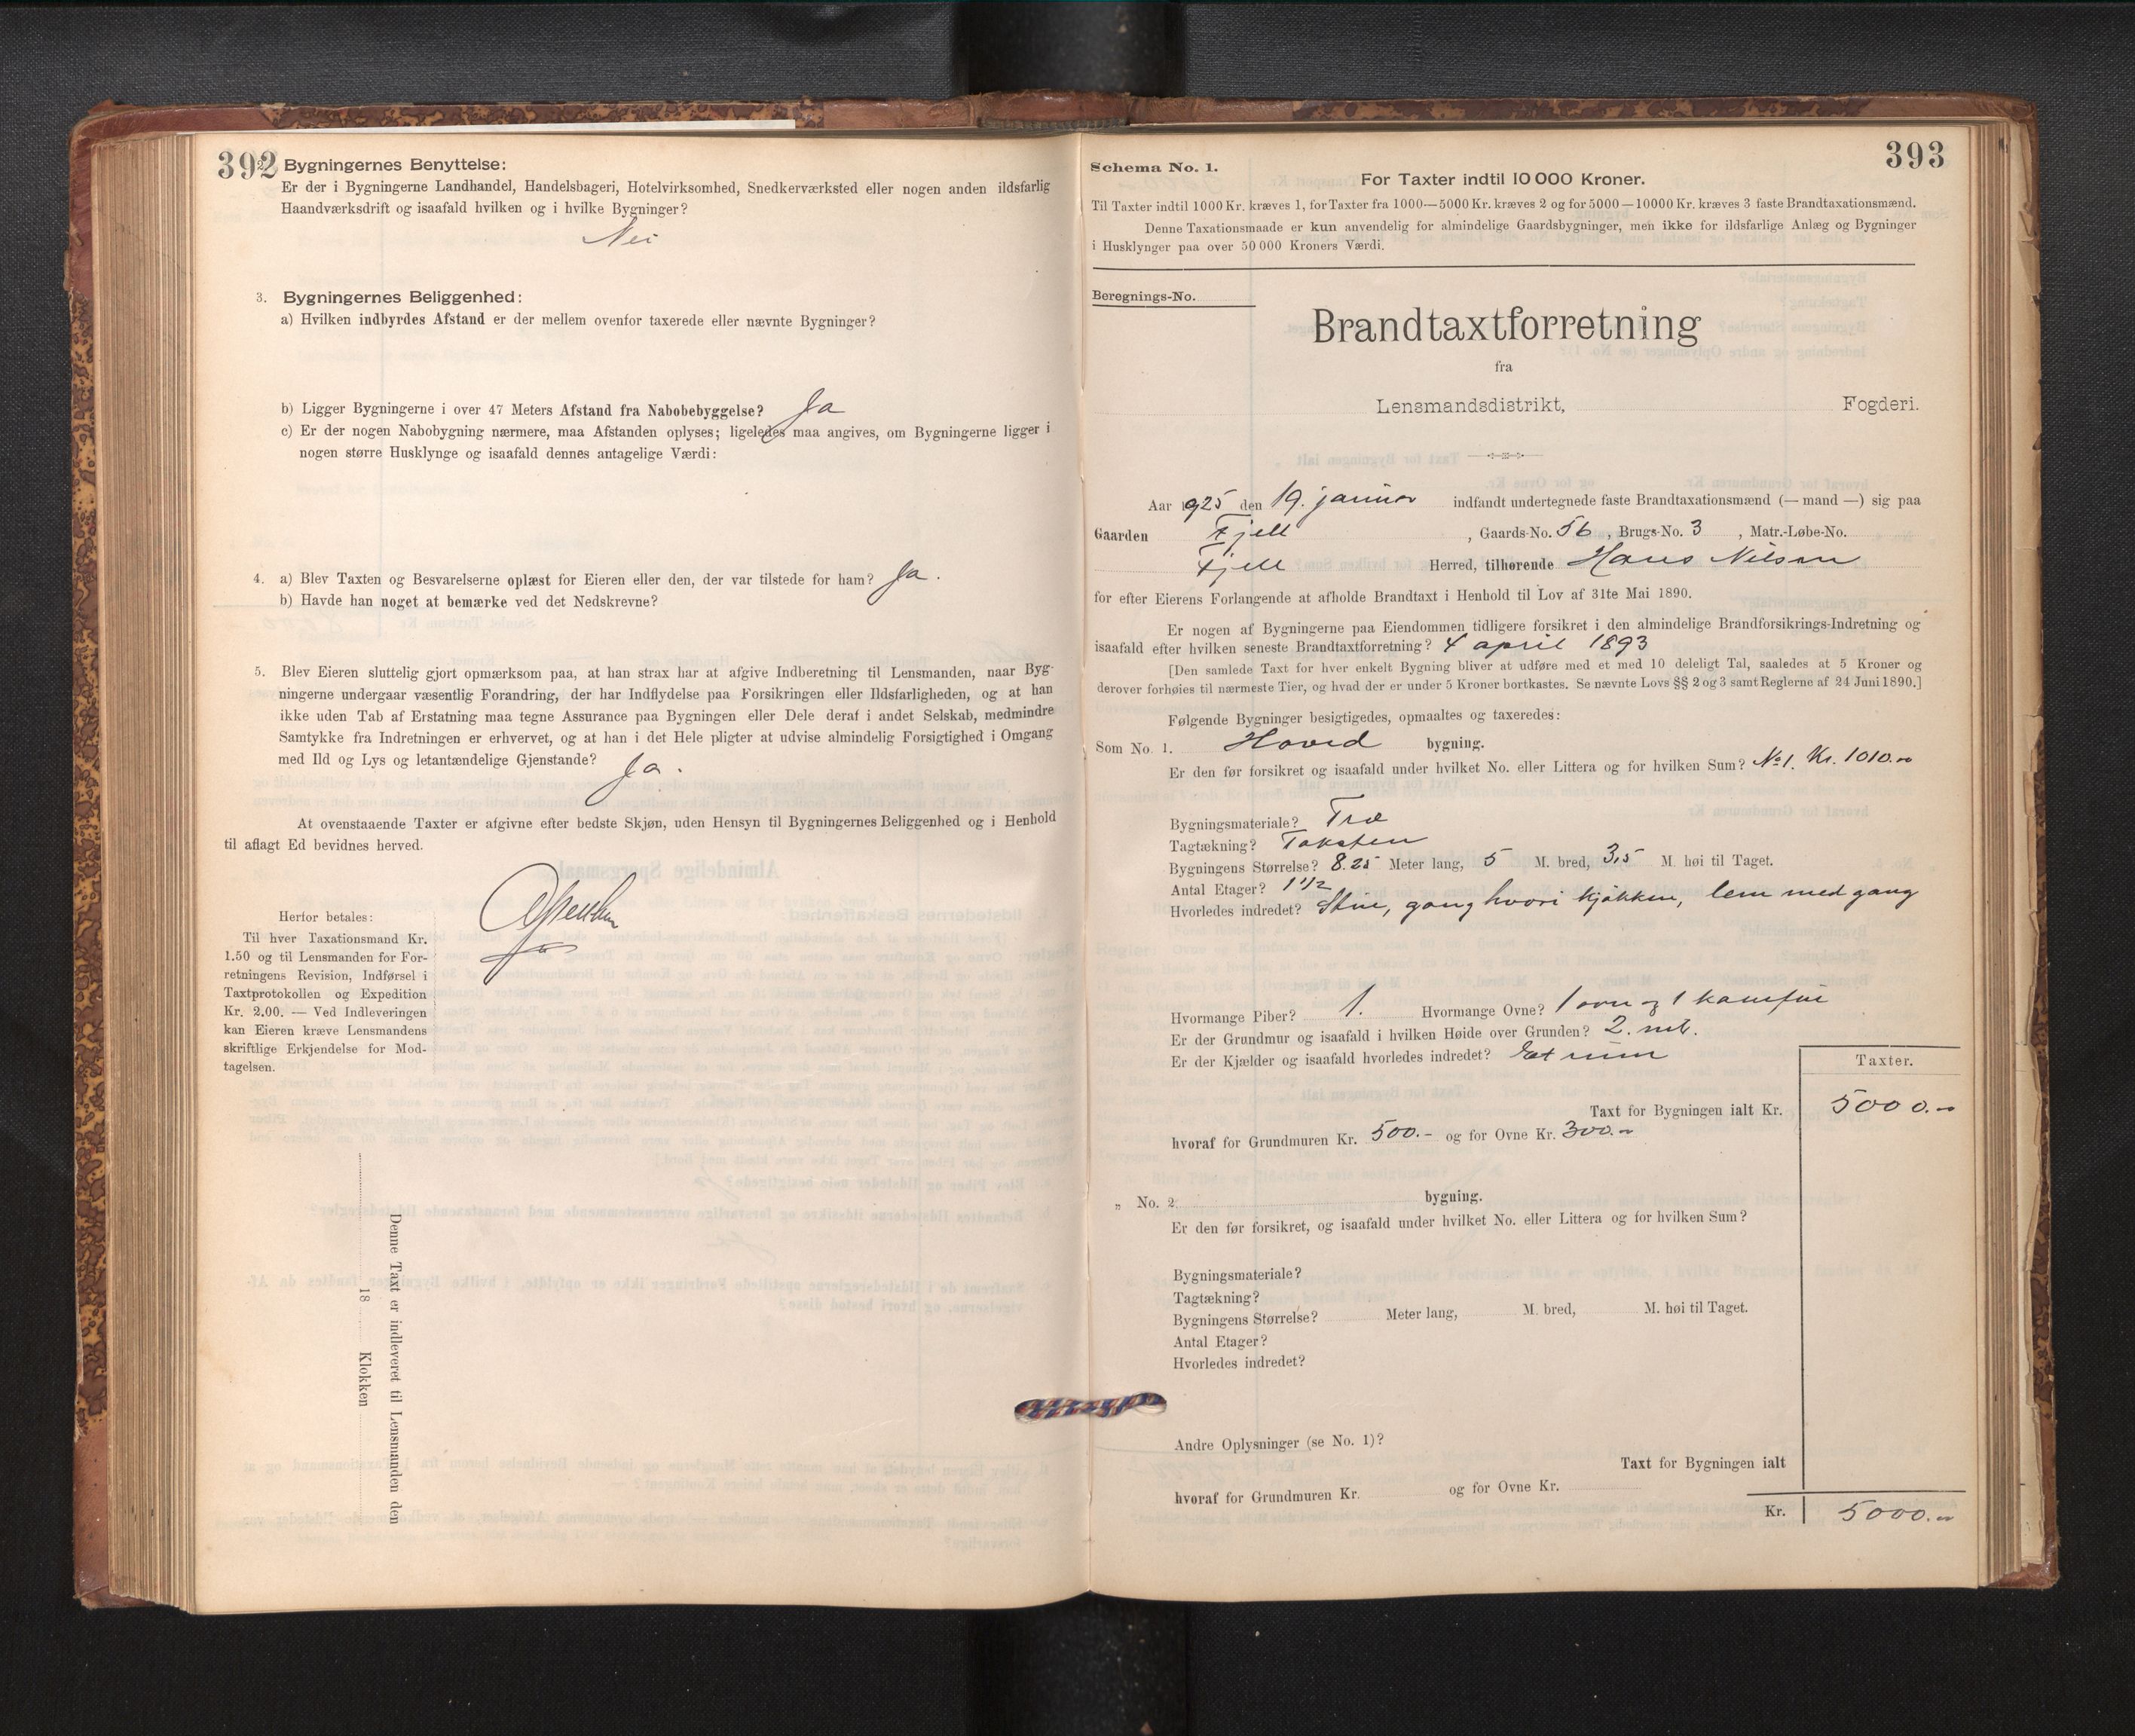 392
Bygningernes Benyttelse:
Er der i Bygningerne Landhandel, Handelsbageri, Hotelvirksomhed, Snedkerværksted eller nogen anden ildsfarlig
Haandværksdrift og isaafald hvilken og i hvilke Bygninger?
Nei
3. Bygningernes Beliggenhed:
a) Hvilken indbyrdes Afstand er der mellem ovenfor taxerede eller nævnte Bygninger?
b) Ligger Bygningerne i over 47 Meters Afstand fra Nabobebyggelse? Ja
c) Er der nogen Nabobygning nærmere, maa Afstanden oplyses; ligeledes maa angives, om Bygningerne ligger i
nogen større Husklynge og isaafald dennes antagelige Værdi:
4. a) Blev Taxten og Besvarelserne oplæst for Eieren eller den, der var tilstede for ham? Ja.
b) Havde han noget at bemærke ved det Nedskrevne?
5. Blev Eieren sluttelig gjort opmærksom paa, at han strax har at afgive Indberetning til Lensmanden, naar Byg-
ningerne undergaar væsentlig Forandring, der har Indflydelse paa Forsikringen eller Ildsfarligheden, og at han
ikke uden Tab af Erstatning maa tegne Assurance paa Bygningen eller Dele deraf i andet Selskab, medmindre
Samtykke fra Indretningen er erhvervet, og at han i det Hele pligter at udvise almindelig Forsigtighed i Omgang
med Ild og Lys og letantændelige Gjenstande? Ja.
At ovenstaaende Taxter er afgivne efter bedste Skjøn, uden Hensyn til Bygningernes Beliggenhed og i Henhold
til aflagt Ed bevidnes herved.
Herfor betales:
Til hver Taxationsmand Kr.
1.50 og til Lensmanden for For-
retningens Revision, Indførsel i
Taxtprotokollen og Expedition
Kr. 2.00. — Ved Indleveringen
kan Eieren kræve Lensmandens
skriftlige Erkjendelse for Mod-
tagelsen.
Denne Taxt er indleveret til Lensmanden den
18 Klokken
393
Schema No. 1.
For Taxter indtil 10 000 Kroner.
Til Taxter indtil 1000 Kr. kræves 1, for Taxter fra 1000—5000 Kr. kræves 2 og for 5000—10000 Kr. kræves 3 faste Brandtaxationsmænd.
Denne Taxationsmaade er kun anvendelig for almindelige Gaardsbygninger, men ikke for ildsfarlige Anlæg og Bygninger
i Husklynger paa over 50 000 Kroners Værdi.
Beregnings-No.
Brandtaxtforretning
fra
Lensmandsdistrikt, Fogderi.
Aar 1925 den 19. januar indfandt undertegnede faste Brandtaxationsmænd (— mand —) sig paa
Gaarden Fjell, Gaards-No. 56, Brugs-No. 3, Matr.-Løbe-No.
Fjell Herred, tilhørende Hans Nilsen
for efter Eierens Forlangende at afholde Brandtaxt i Henhold til Lov af 31te Mai 1890.
Er nogen af Bygningerne paa Eiendommen tidligere forsikret i den almindelige Brandforsikrings-Indretning og
isaafald efter hvilken seneste Brandtaxtforretning? 4 april 1893
[Den samlede Taxt for hver enkelt Bygning bliver at udføre med et med 10 deleligt Tal, saaledes at 5 Kroner og
derover forhøies til nærmeste Tier, og hvad der er under 5 Kroner bortkastes. Se nævnte Lovs §§ 2 og 3 samt Reglerne af 24 Juni 1890.]
Følgende Bygninger besigtigedes, opmaaltes og taxeredes:
Som No. 1. Hoved bygning.
Er den før forsikret og isaafald under hvilket No. eller Littera og for hvilken Sum? No 1. Kr. 1010.
Bygningsmateriale? Træ
Tagtækning? Taksten
Bygningens Størrelse? 8.25 Meter lang, 5 M. bred, 3,5 M. høi til Taget.
Antal Etager? 1 1/2
Hvorledes indredet? Stue, gang hvori kjøkken, lem med gang
Hvormange Piber? 1. Hvormange Ovne? 1 ovn og 1 komfur
Er der Grundmur og isaafald i hvilken Høide over Grunden? 2. mt.
Er der Kjælder og isaafald hvorledes indredet? Et rum
Taxter.
Taxt for Bygningen ialt Kr. 5000.-
hvoraf for Grundmuren Kr. 500.- og for Ovne Kr. 300.-
„ No. 2. bygning.
Er den før forsikret, og isaafald under hvilket No. eller Littera og for hvilken Sum?
Bygningsmateriale?
Tagtækning?
Bygningens Størrelse? Meter lang, M. bred, M. høi til Taget.
Antal Etager?
Hvorledes indredet?
Andre Oplysninger (se No. 1)?
Taxt for Bygningen ialt
hvoraf for Grundmuren Kr. og for Ovne Kr.
Kr. 5000.-